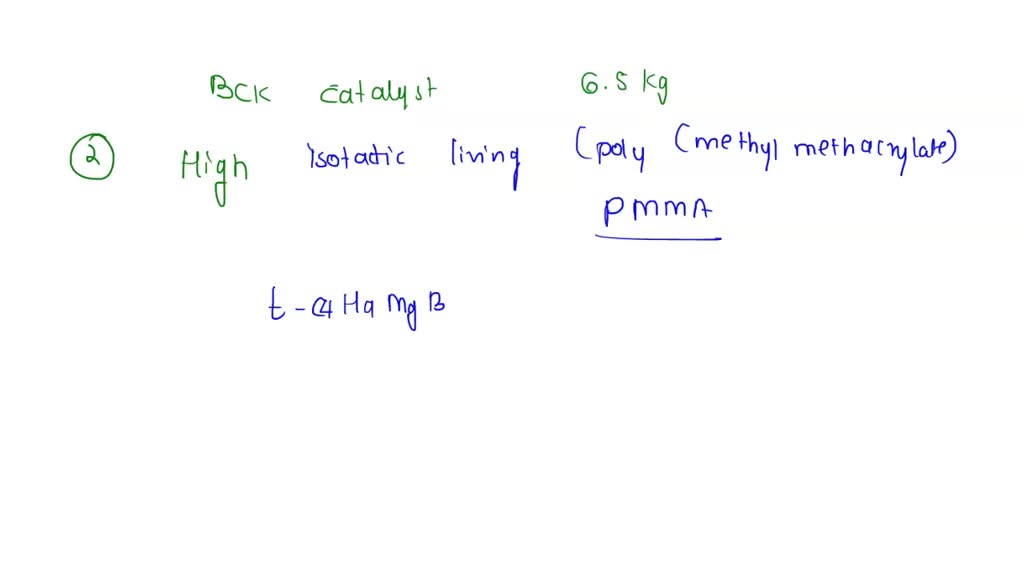 BCK catalyst 6.5 kg
② High Isotatic living (poly (methyl methacrylate)
PMMA
t-C4H9MgB